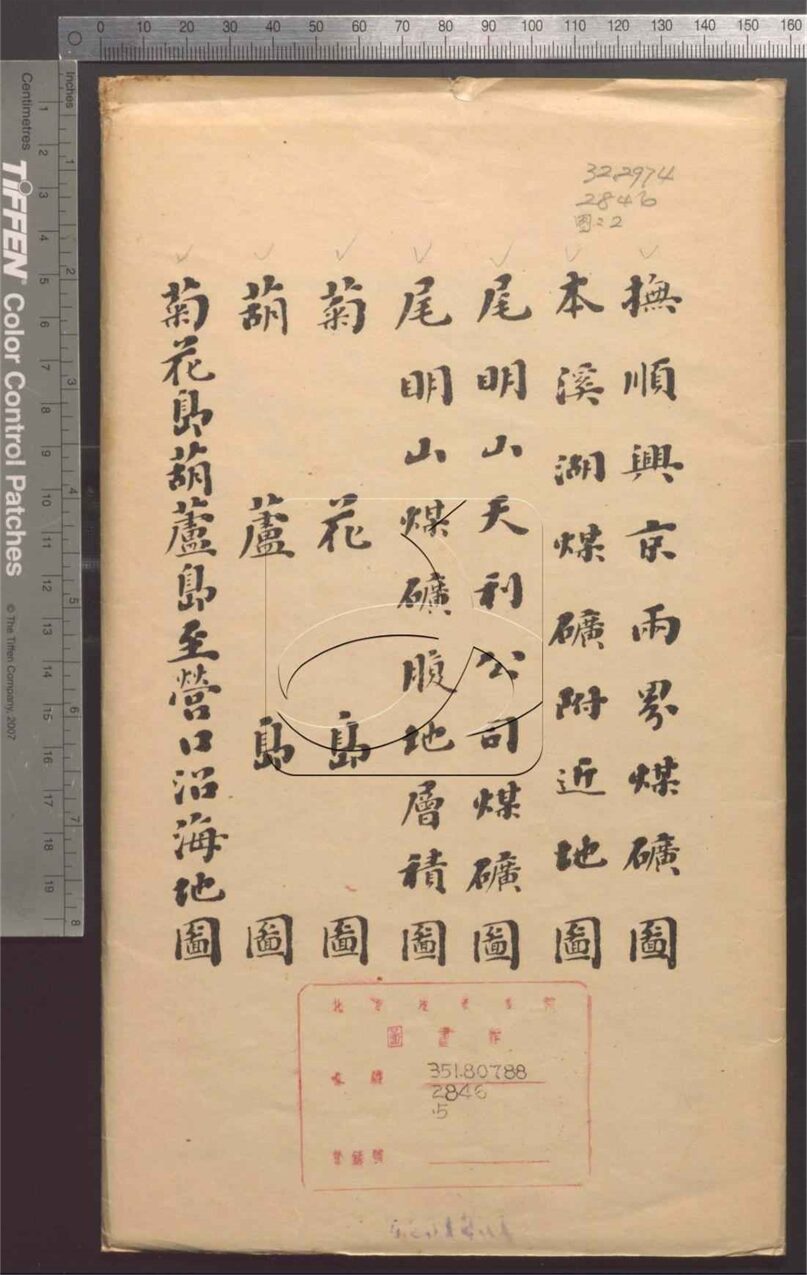 0 10 20 30 40 50 60 70 80 90 100 110 120 130 140 150 160
Inches
1 2 3 4 5 6 7 8
Centimetres
1 2 3 4 5 6 7 8 9 10 11 12 13 14 15 16 17 18 19
TIFFEN Color Control Patches
© The Tiffen Company, 2007
32.2974
2846
图:2
撫順興京兩界煤礦圖
本溪湖煤礦附近地圖
尾明山天利公司煤礦圖
尾明山煤礦順地層積圖
菊花島圖
葫蘆島圖
菊花島葫蘆島至營口沿海地圖
圖書館
351.80788
2846
登錄號